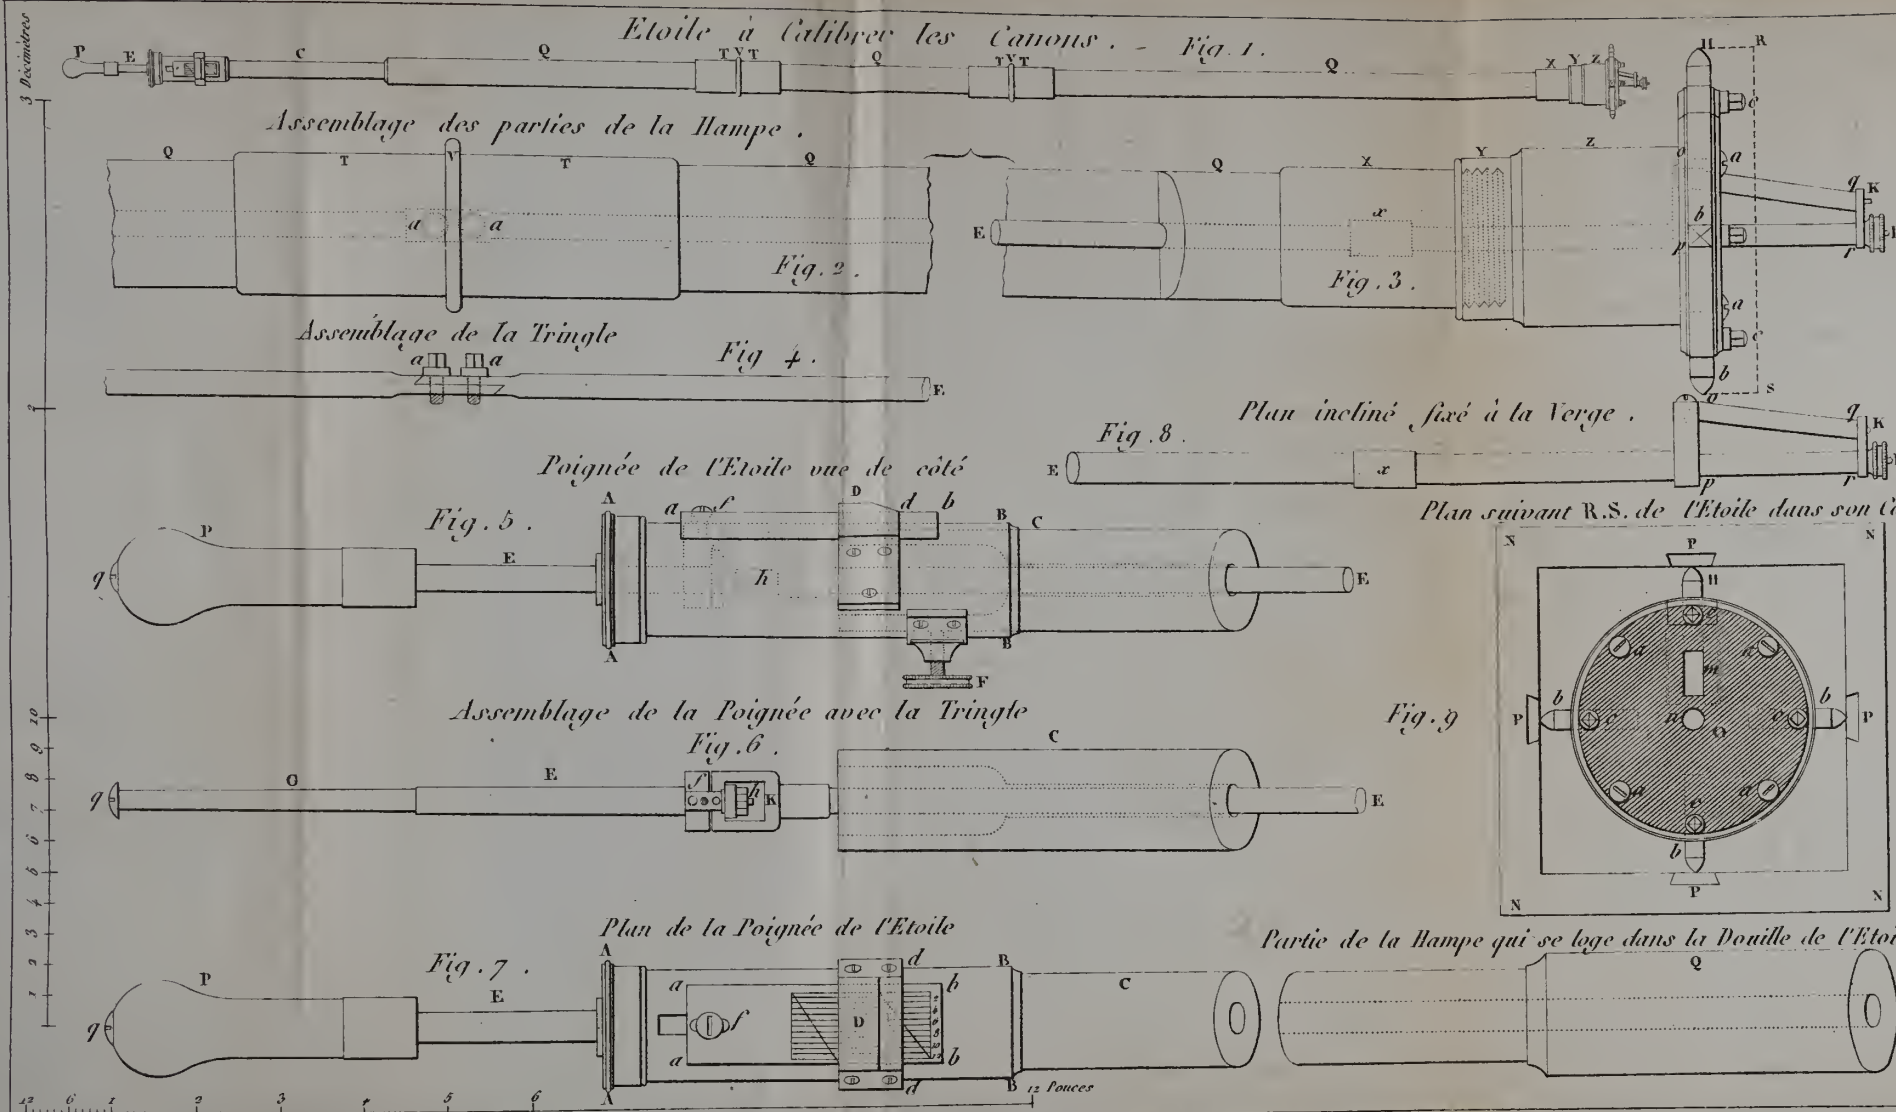 Etoile à Calibrer les Canons. - Fig. 1.
3 Décimètres
P E C Q T V T Q T V T Q X Y Z H R
Assemblage des parties de la Hampe.
Q T V T Q Q X Y Z
a a E x
Fig. 2.
Fig. 3.
o a q K b p r c a c b S
Assemblage de la Tringle
a a Fig 4.
E
2
Plan incliné fixé à la Verge.
Fig. 8.
E x o q K p r
Poignée de l'Etoile vue de côté
Fig. 5.
A a f D d b B C
q P E h E
A B F
Plan suivant R.S. de l'Etoile dans son
N P N
H
c
a a
m
P b c n O c b P
a a
c
b
N P N
Fig. 9
Assemblage de la Poignée avec la Tringle
Fig. 6.
C
q O E f h K E
10
9
8
7
6
5
4
3
2
1
Plan de la Poignée de l'Etoile
Fig. 7.
A d B
q P E a f D b C
a b
A d B
Partie de la Hampe qui se loge dans la Douille de
Q
12 6 1 2 3 4 5 6 12 Pouces